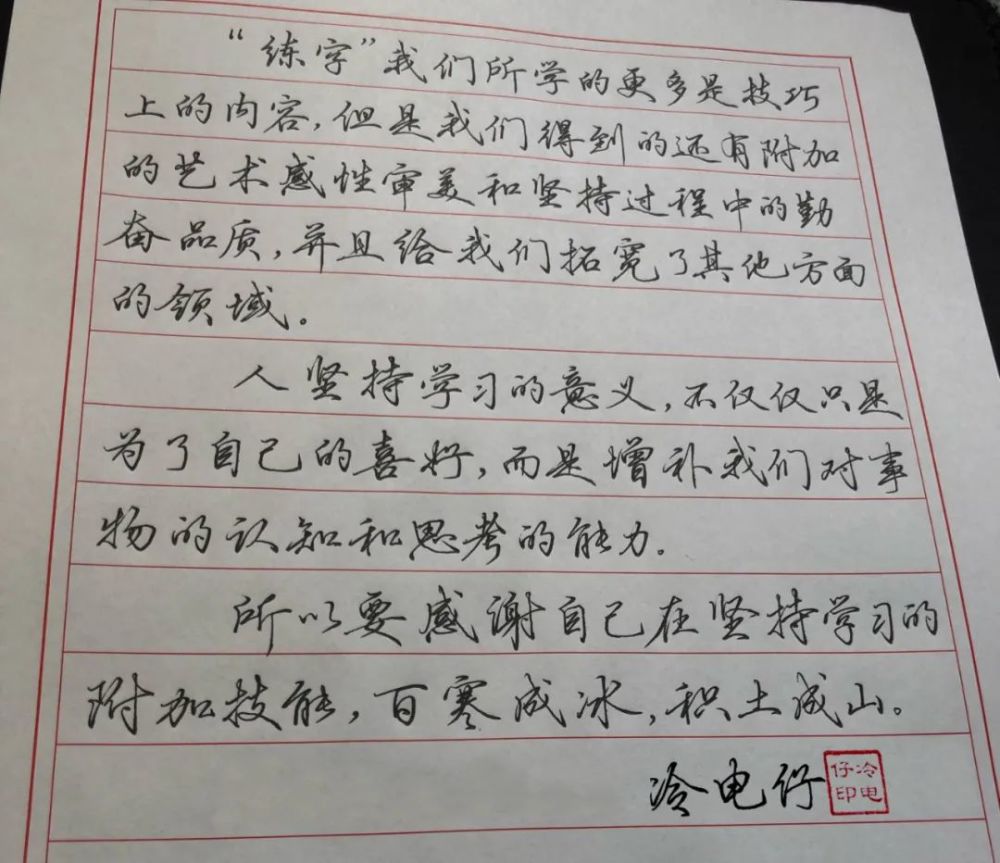 “练字”我们所学的更多是技巧
上的内容，但是我们得到的还有附加
的艺术感性审美和坚持过程中的勤
奋品质，并且给我们拓宽了其他方面
的领域。
人坚持学习的意义，不仅仅只是
为了自己的喜好，而是增补我们对事
物的认知和思考的能力。
所以要感谢自己在坚持学习的
附加技能，百寒成冰，积土成山。
冷电仔
冷电仔印